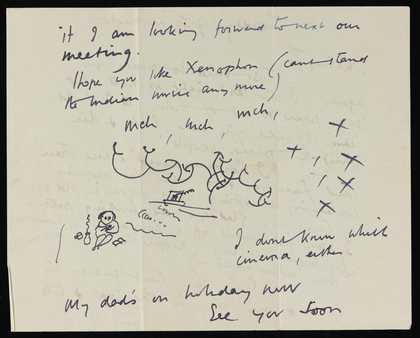 if I am looking forward to next our
meeting.
I hope you like Xenophon (cant stand
the Indian music any more)
mch, mch, mch,
I dont know which
cinema, either.
My dad's on holiday now
See you soon